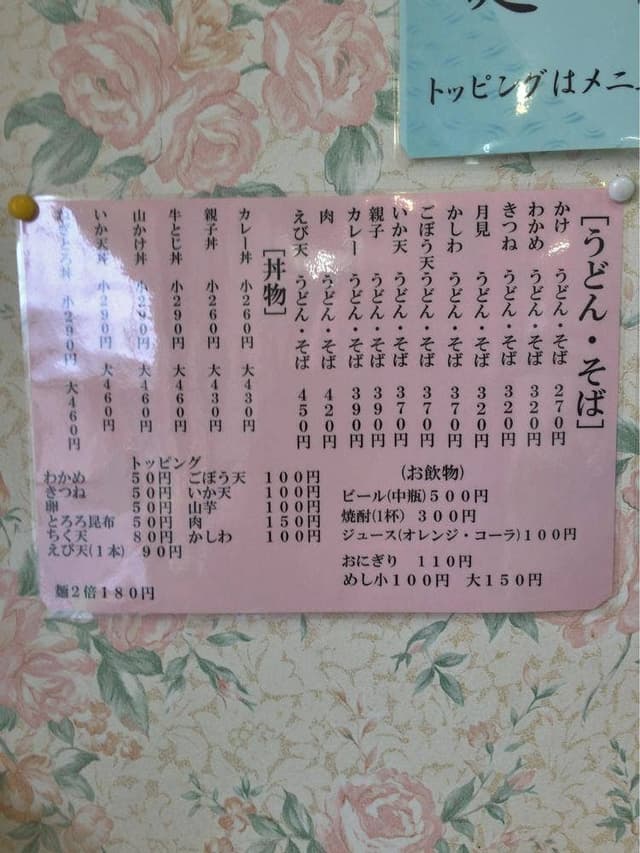 トッピングはメニ
[うどん・そば]
かけ うどん・そば 270円
わかめ うどん・そば 320円
きつね うどん・そば 320円
月見 うどん・そば 320円
かしわ うどん・そば 370円
ごぼう天うどん・そば 370円
いか天 うどん・そば 370円
親子 うどん・そば 390円
カレー うどん・そば 390円
肉 うどん・そば 420円
えび天 うどん・そば 450円
[丼物]
カレー丼 小260円 大430円
親子丼 小260円 大430円
牛とじ丼 小290円 大460円
山かけ丼 小290円 大460円
いか天丼 小290円 大460円
とろ丼 小290円 大460円
トッピング
わかめ 50円 ごぼう天 100円
きつね 50円 いか天 100円
卵 50円 山芋 100円
とろろ昆布 50円 肉 150円
ちく天 80円 かしわ 100円
えび天(1本) 90円
麺2倍180円
(お飲物)
ビール(中瓶)500円
焼酎(1杯) 300円
ジュース(オレンジ・コーラ)100円
おにぎり 110円
めし小100円 大150円